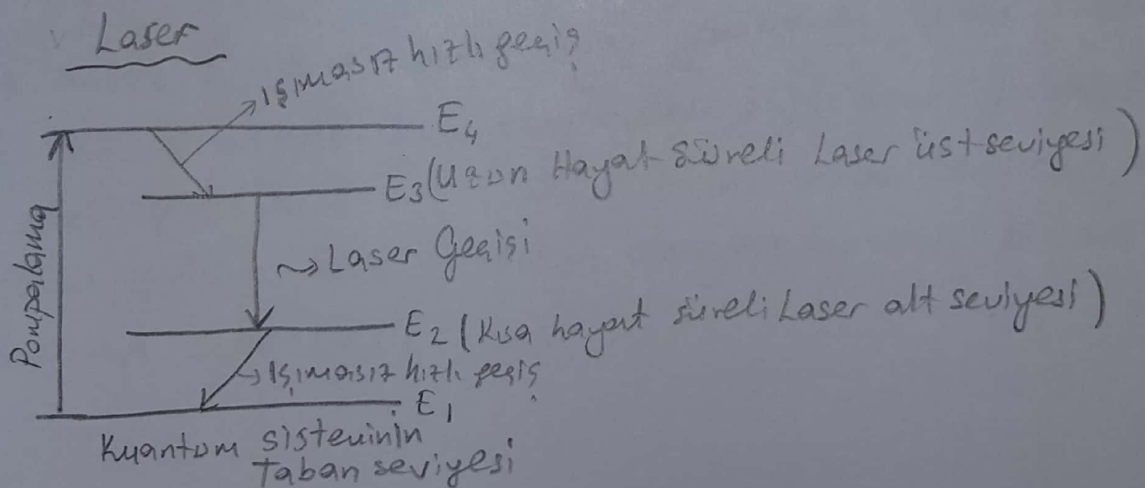 Laser
Işımasız hızlı geçiş
E4
E3 (Uzun Hayat Süreli Laser üst seviyesi)
Pompalama
Laser Geçişi
E2 (Kısa hayat süreli Laser alt seviyesi)
Işımasız hızlı geçiş
E1
Kuantum sisteminin
Taban seviyesi